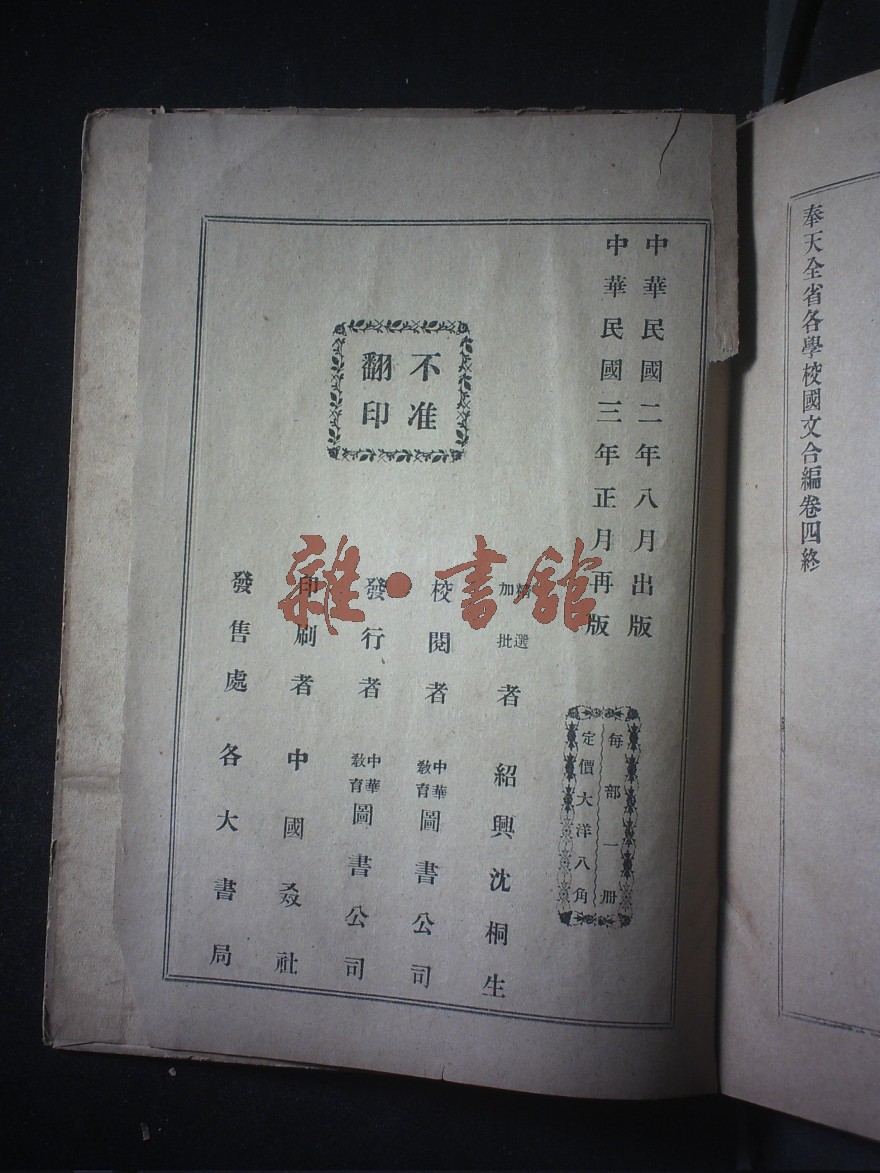 奉天全省各學校國文合編卷四終
中華民國二年八月出版
中華民國三年正月再版
每部一冊
定價大洋八角
不准
翻印
精選
加批
者紹興沈桐生
校閱者中華教育圖書公司
發行者中華教育圖書公司
印刷者中國㕛社
發售處各大書局
雜·書館